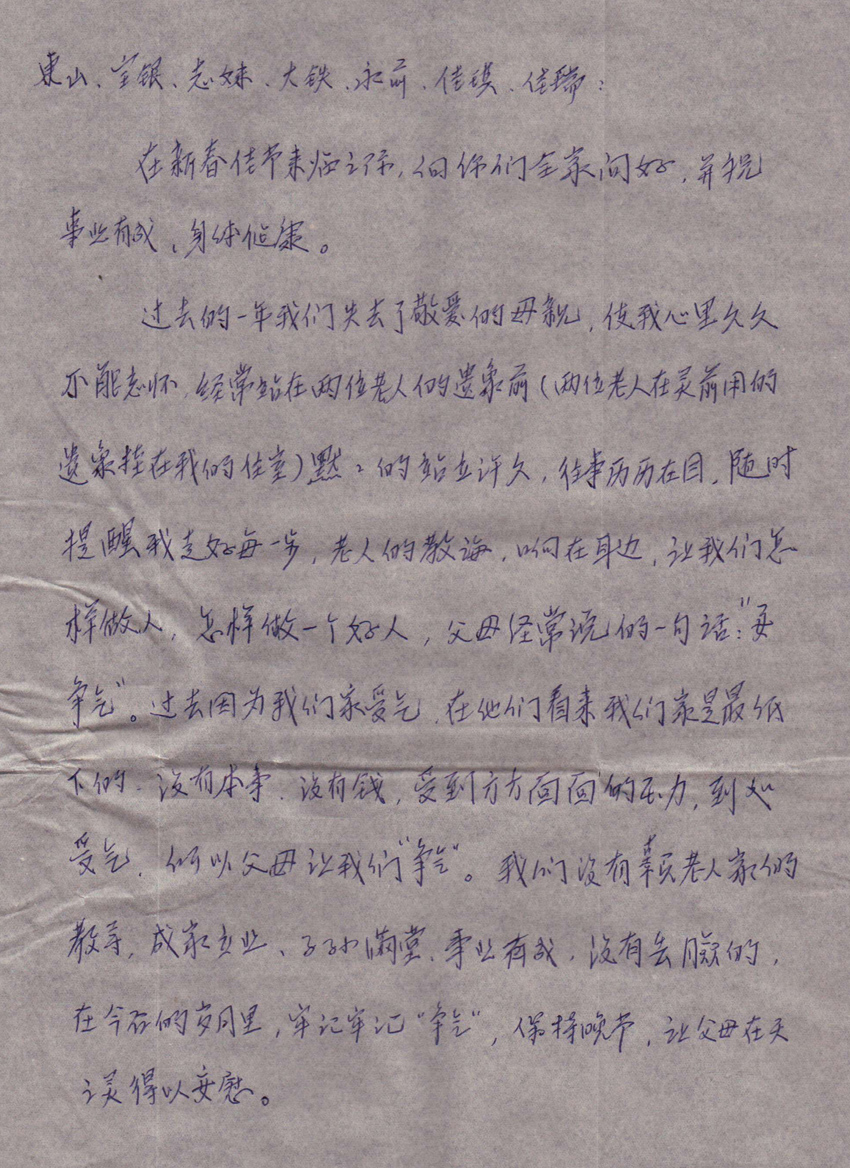 東山、宝银、志妹、大铁、永前、佳琪、佳瑞：
在新春佳节来临之际，向你们全家问好，并祝
事业有成、身体健康。
过去的一年我们失去了敬爱的母亲，使我心里久久
不能忘怀，经常站在两位老人的遗象前（两位老人在灵前用的
遗象挂在我的住室）默々的站立许久，往事历历在目，随时
提醒我走好每一步，老人的教诲，响在耳边，让我们怎
样做人，怎样做一个好人，父母经常说的一句话：“要
争气”。过去因为我们家受气，在他们看来我们家是最低
下的，没有本事，没有钱，受到方方面面的压力，到处
受气，所以父母让我们“争气”。我们没有辜负老人家的
教导，成家立业、子孙满堂、事业有成，没有丢脸的，
在今后的岁月里，牢记牢记“争气”，保持晚节，让父母在天
之灵得以安慰。